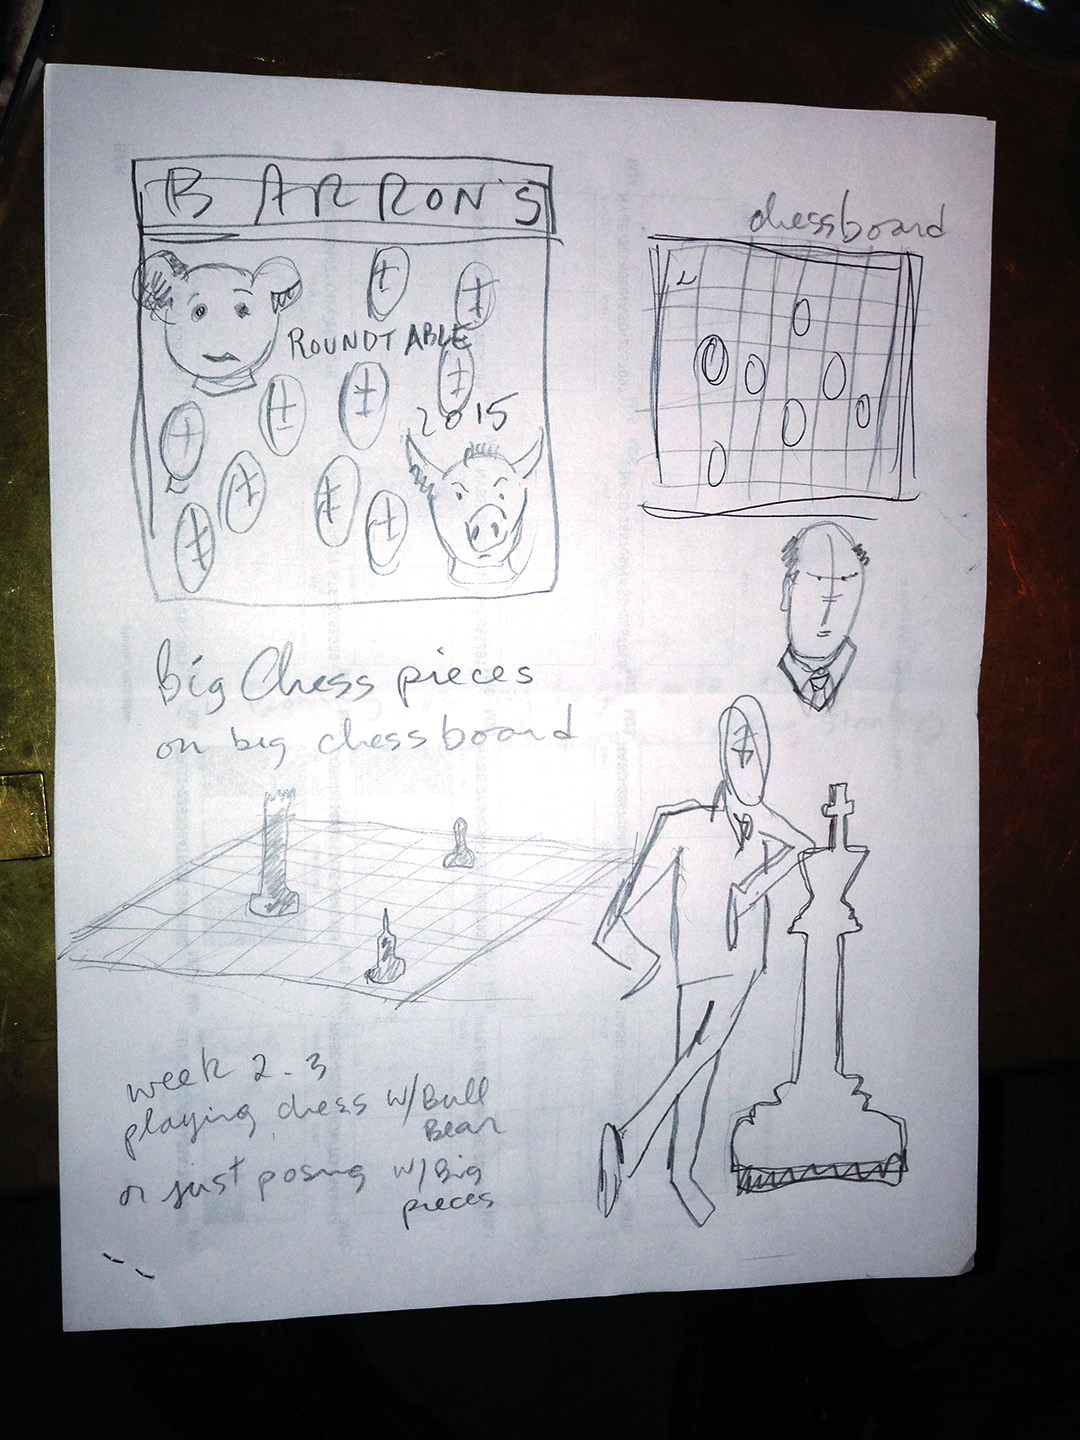 BARRON'S
ROUNDTABLE
2015
chessboard
Big Chess pieces
on big chessboard
week 2-3
playing chess w/Bull
Bear
or just posing w/Big
pieces